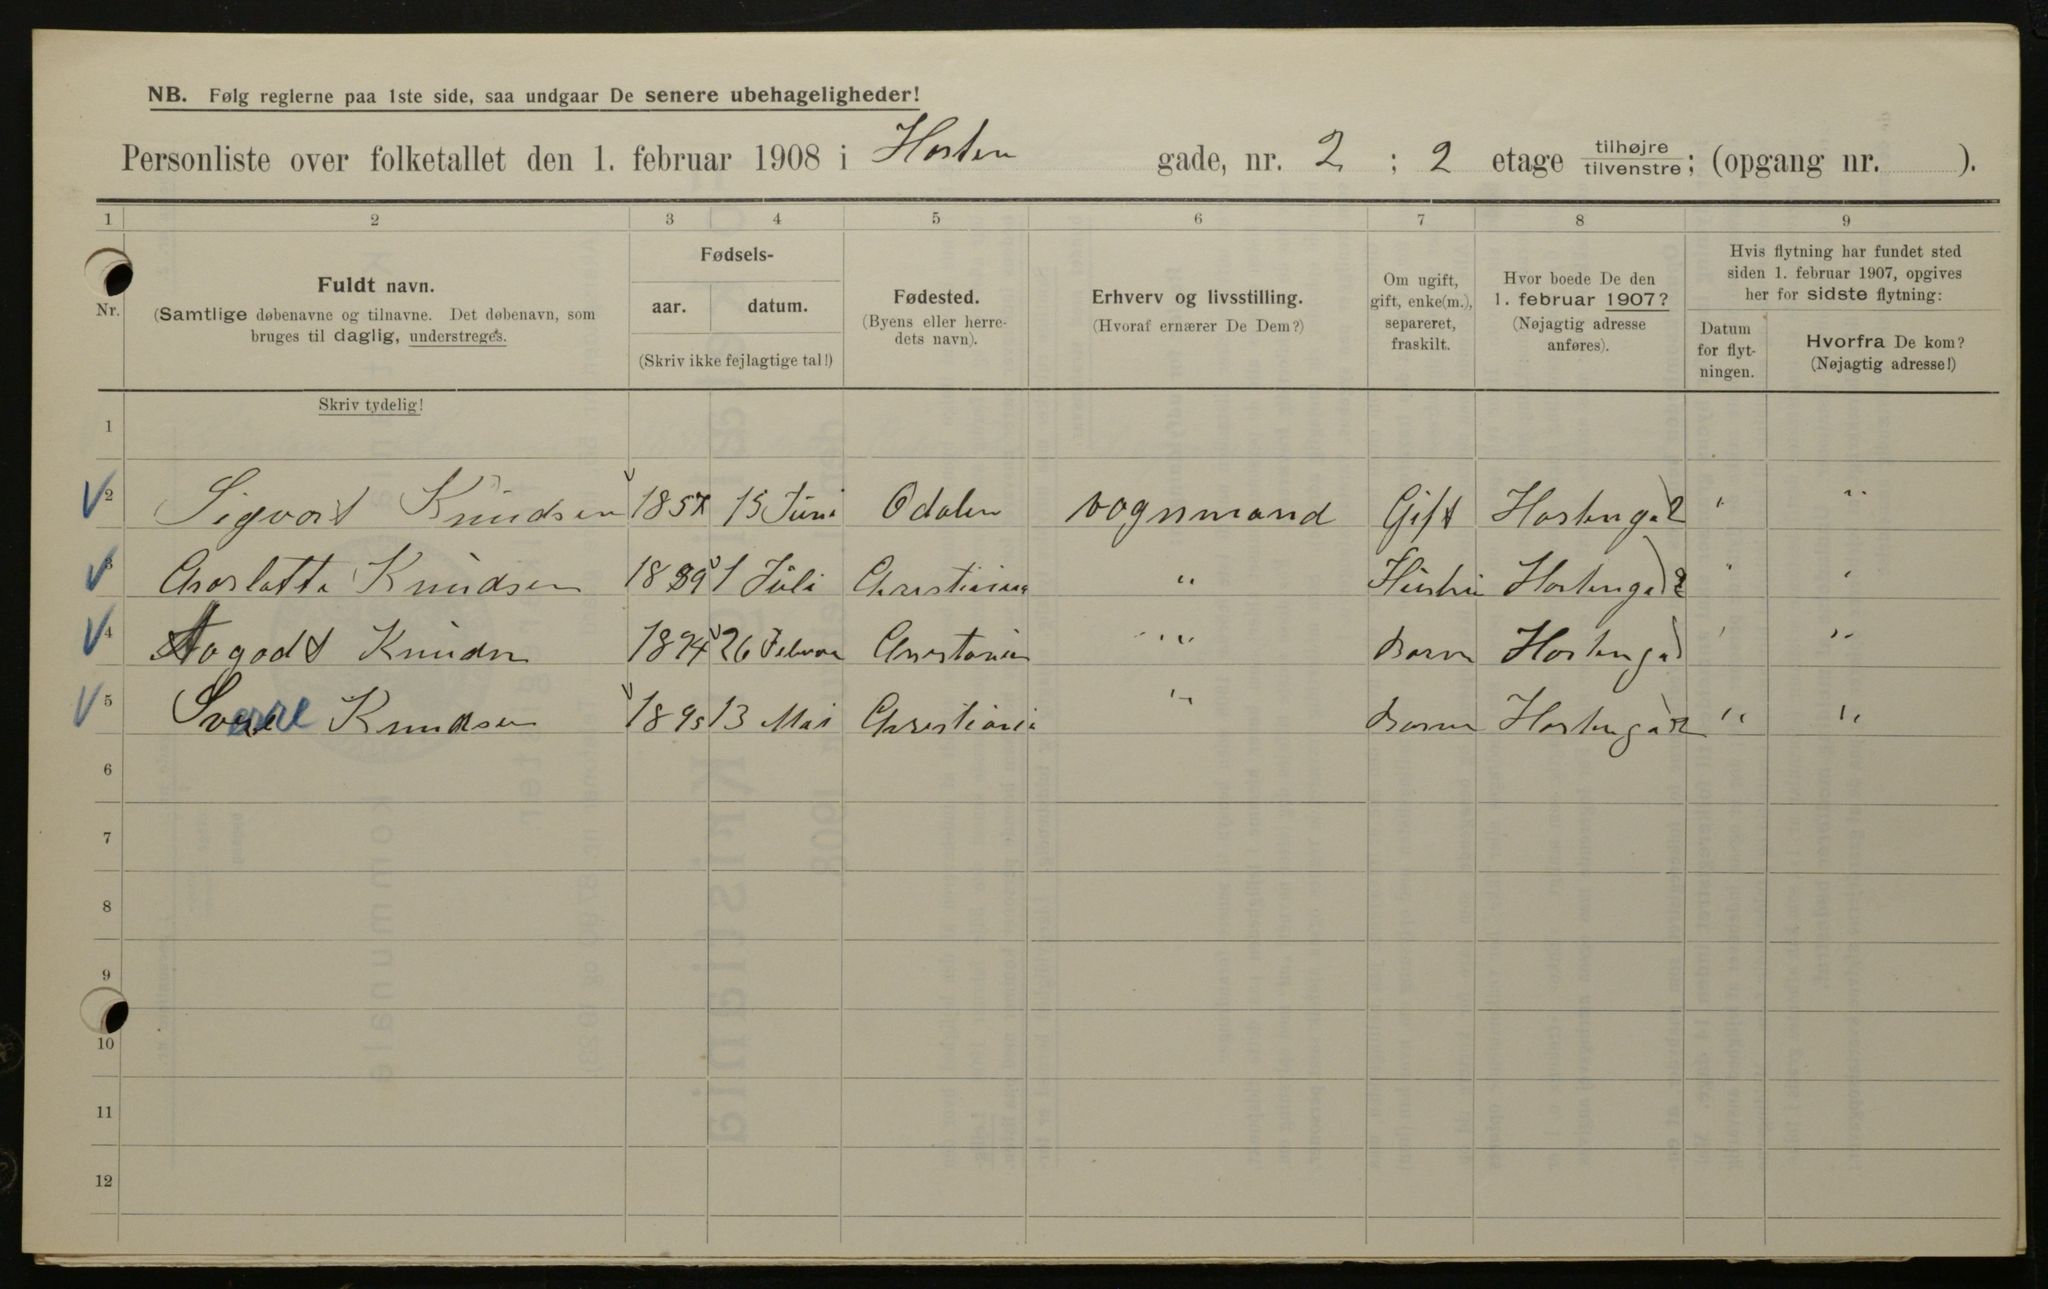 NB. Følg reglerne paa 1ste side, saa undgaar De senere ubehageligheder!
Personliste over folketallet den 1. februar 1908 i Horten gade, nr. 2 ; 2 etage tilhøjre tilvenstre; (opgang nr. ).
1 2 3 4 5 6 7 8 9
Nr.
Fuldt navn.
(Samtlige døbenavne og tilnavne. Det døbenavn, som
bruges til daglig, understreges.
Fødsels-
aar. datum.
(Skriv ikke fejlagtige tal!)
Fødested.
(Byens eller herre-
dets navn).
Erhverv og livsstilling.
(Hvoraf ernærer De Dem?)
Om ugift,
gift, enke(m.),
separeret,
fraskilt.
Hvor boede De den
1. februar 1907?
(Nøjagtig adresse
anføres).
Hvis flytning har fundet sted
siden 1. februar 1907, opgives
her for sidste flytning:
Datum
for flyt-
ningen.
Hvorfra De kom?
(Nøjagtig adresse!)
Skriv tydelig!
1
2 Sigvart Knudsen 1857 15 Juni Odalen vognmand Gift Hortenga 2 " "
3 Charlotte Knudsen 1 Juli Christiania " Hustru Hortenga 2 " "
4 Knudsn 1894 26 Christania " Barn Hortenga " "
5 Sverre Knudsen 1895 13 Mai Christiania " Barn Hortenga 2 " "
6
7
8
9
10
11
12